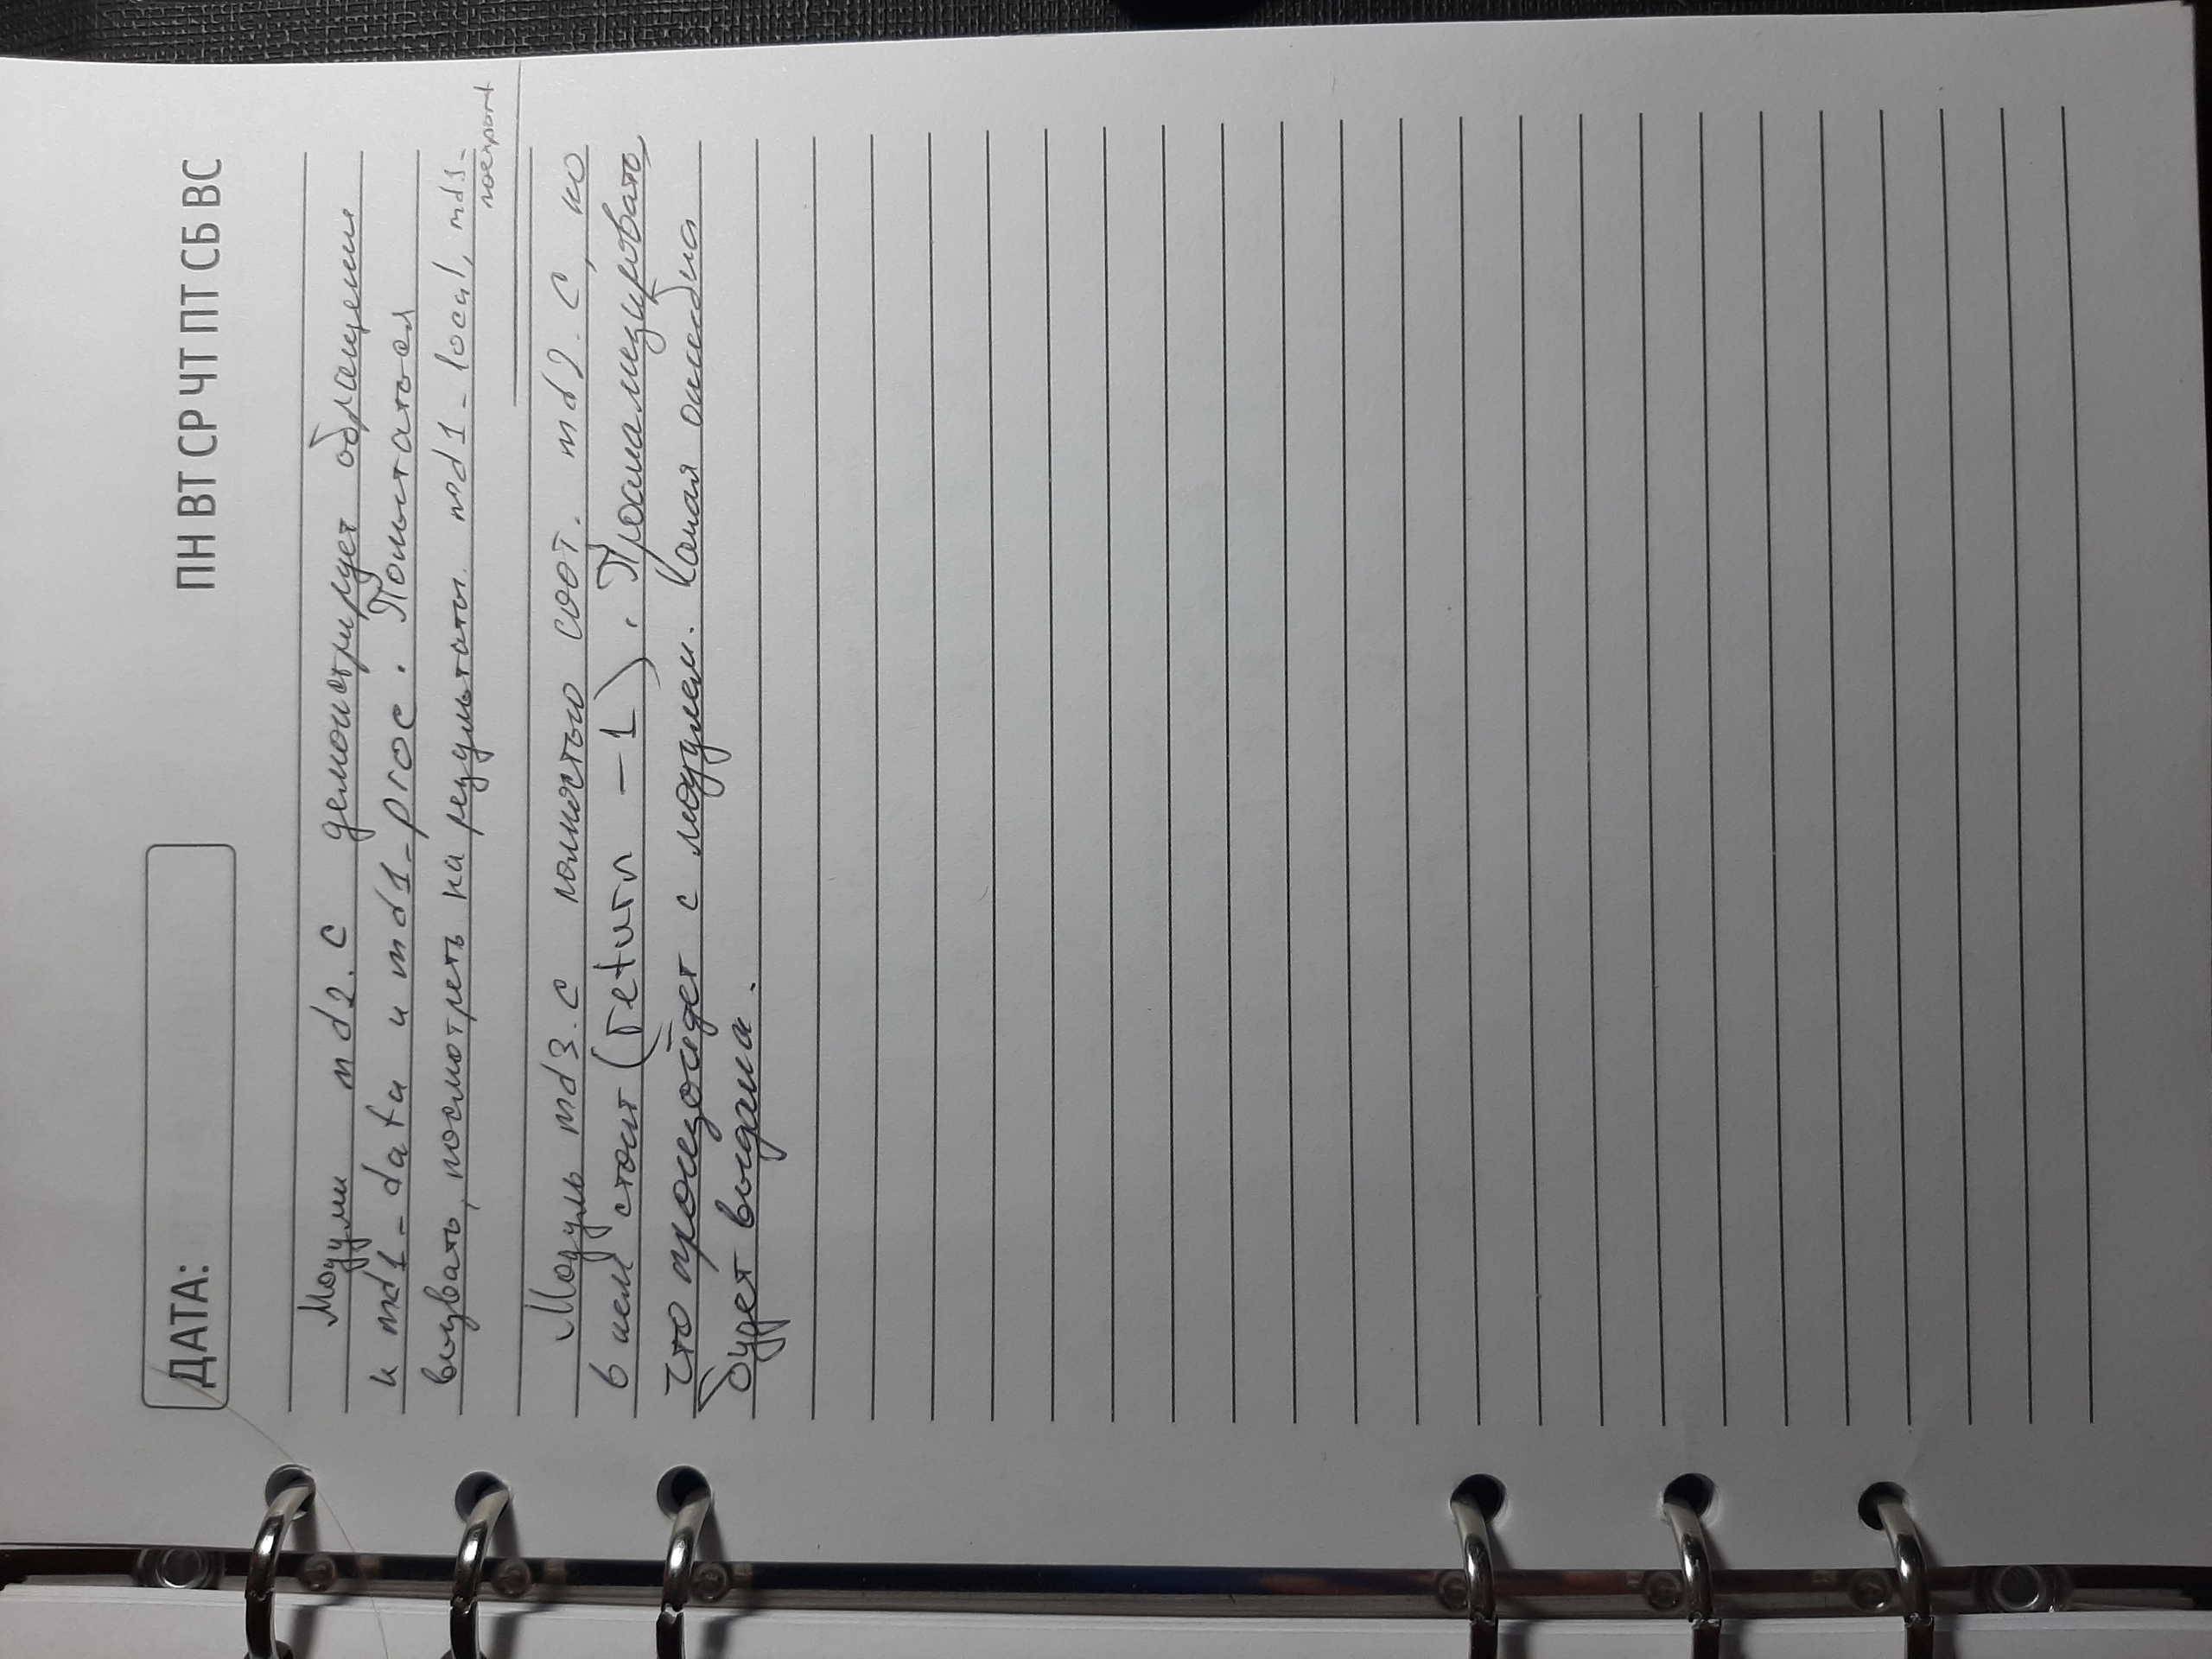 ДАТА:
ПН ВТ СР ЧТ ПТ СБ ВС
Модули md2.c демонстрирует обращение
к md1_data и md1_proc. Попытаться
вызвать, посмотреть на результаты. md1_local, md1_
noexport
Модуль md3.c полностью соот. md2.c, но
в нем стоит (return -1). Проанализировать,
что произойдет с модулем. Какая ошибка
будет выдана.